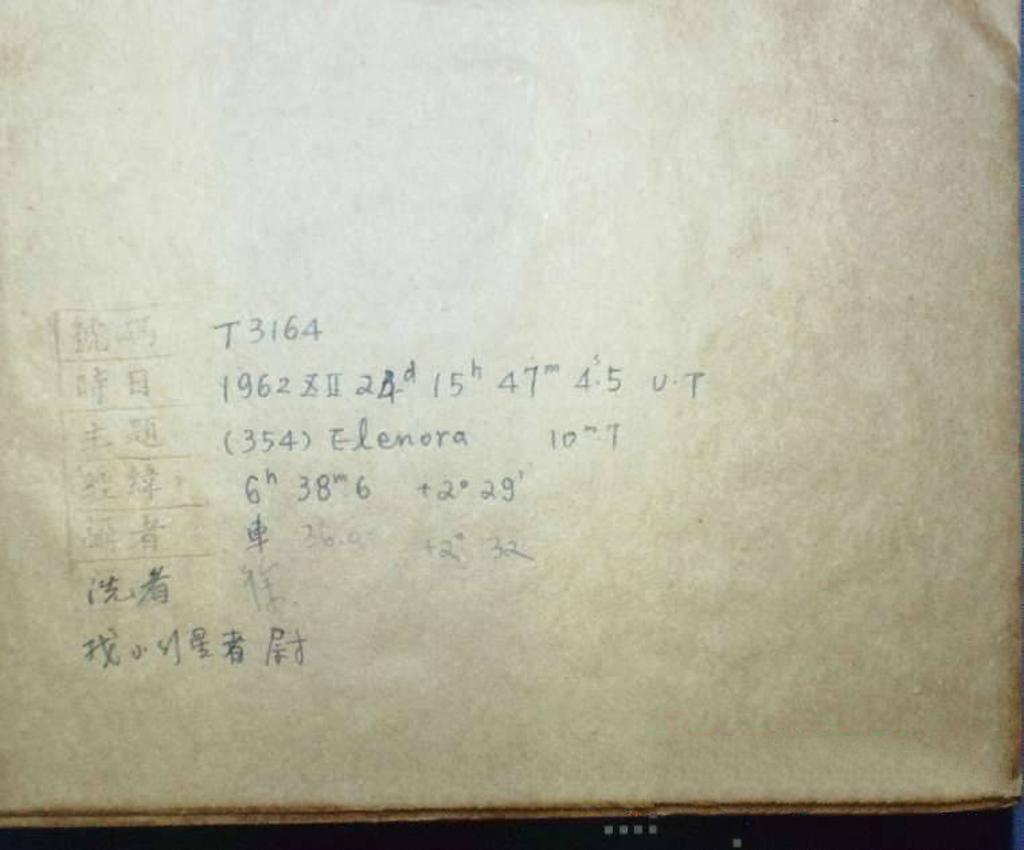 號碼 T3164
時日 1962 XII 24ᵈ 15ʰ 47ᵐ 4ˢ.5 U.T
主題 (354) Elenora 10ᵐ.7
經緯 6ʰ 38ᵐ6 +2° 29'
攝者 車 36.0 +2° 32
洗者 徐
找小行星者 尉